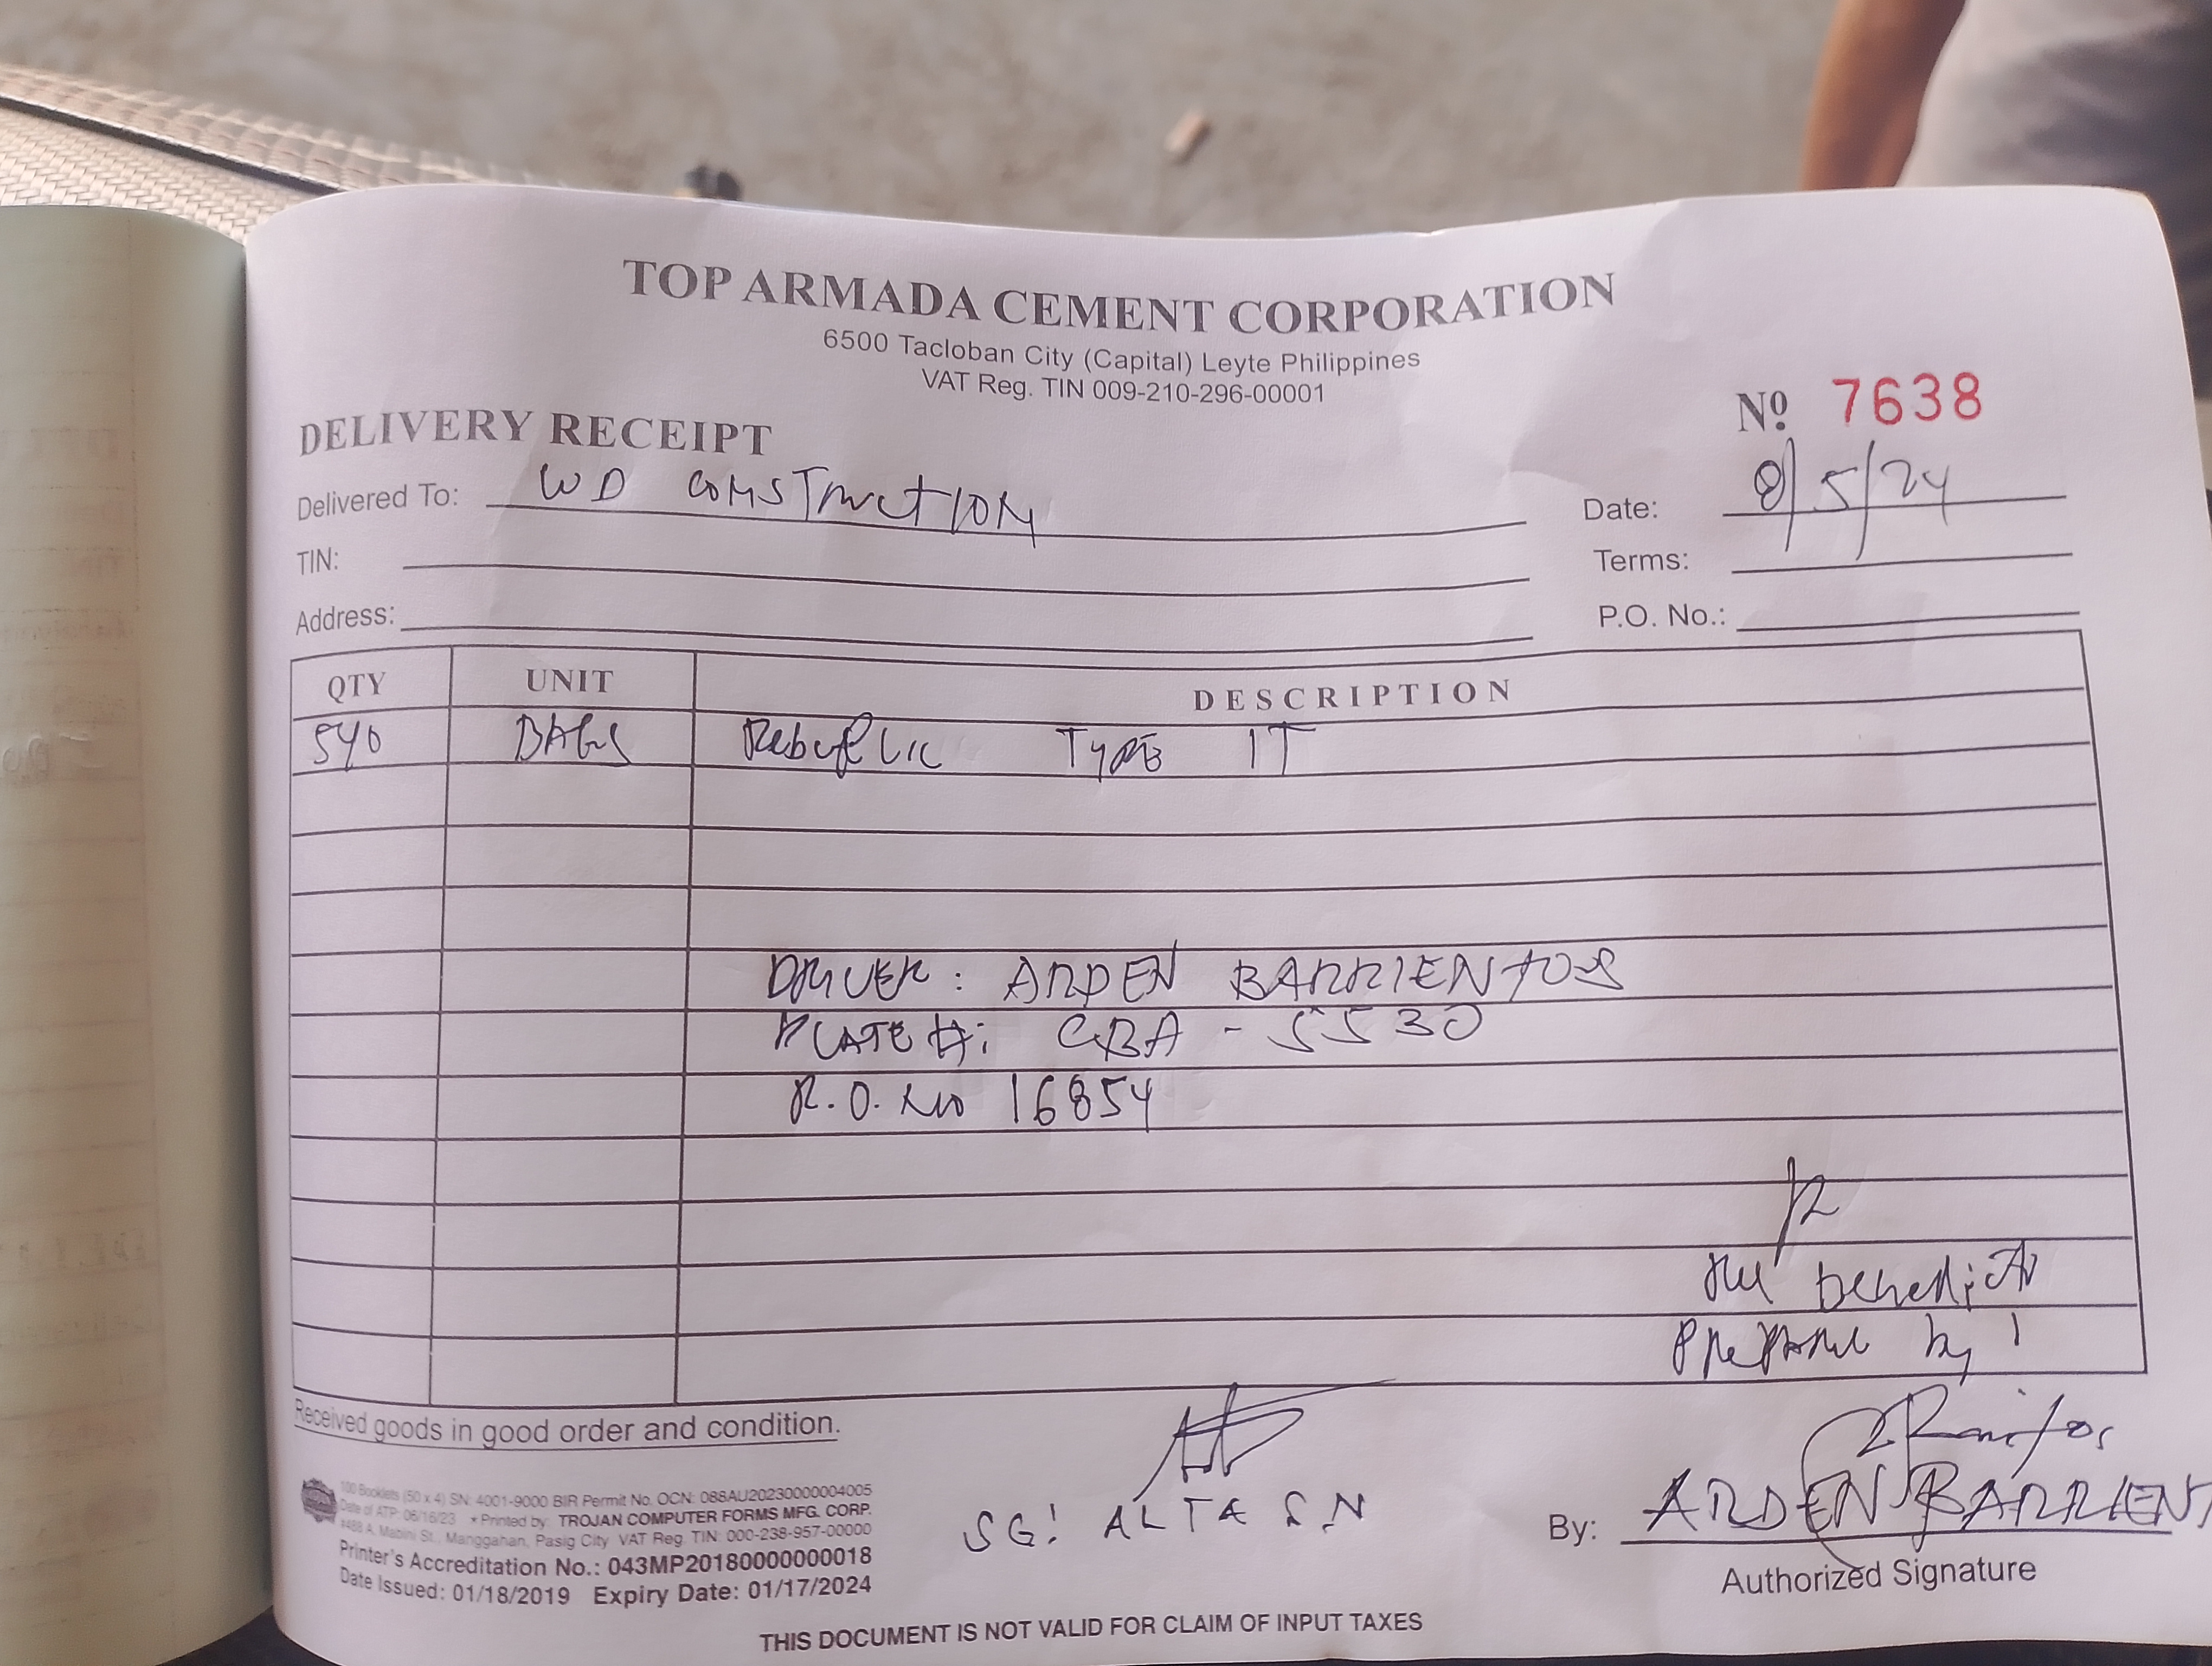 TOP ARMADA CEMENT CORPORATION
6500 Tacloban City (Capital) Leyte Philippines
VAT Reg. TIN 009-210-296-00001
Nº 7638
DELIVERY RECEIPT
Delivered To: WD CONSTRUCTION
Date: 8/5/24
TIN:
Terms:
Address:
P.O. No.:
QTY UNIT DESCRIPTION
540 BAGS Republic TYPE 1T
DRIVER: ARDEN BARRIENTOS
PLATE #: CBA - 5530
R.O. No 16854
Benedicto
Prepare by
Received goods in good order and condition.
100 Booklets (50 x 4) SN: 4001-9000 BIR Permit No. OCN: 088AU20230000004005
Date of ATP: 06/16/23 * Printed by: TROJAN COMPUTER FORMS MFG. CORP.
#488 A. Mabini St., Manggahan, Pasig City VAT Reg. TIN: 000-238-957-00000
Printer's Accreditation No.: 043MP20180000000018
Date Issued: 01/18/2019 Expiry Date: 01/17/2024
SG: ALTA S.N
By: ARDEN BARRIENT
Authorized Signature
THIS DOCUMENT IS NOT VALID FOR CLAIM OF INPUT TAXES